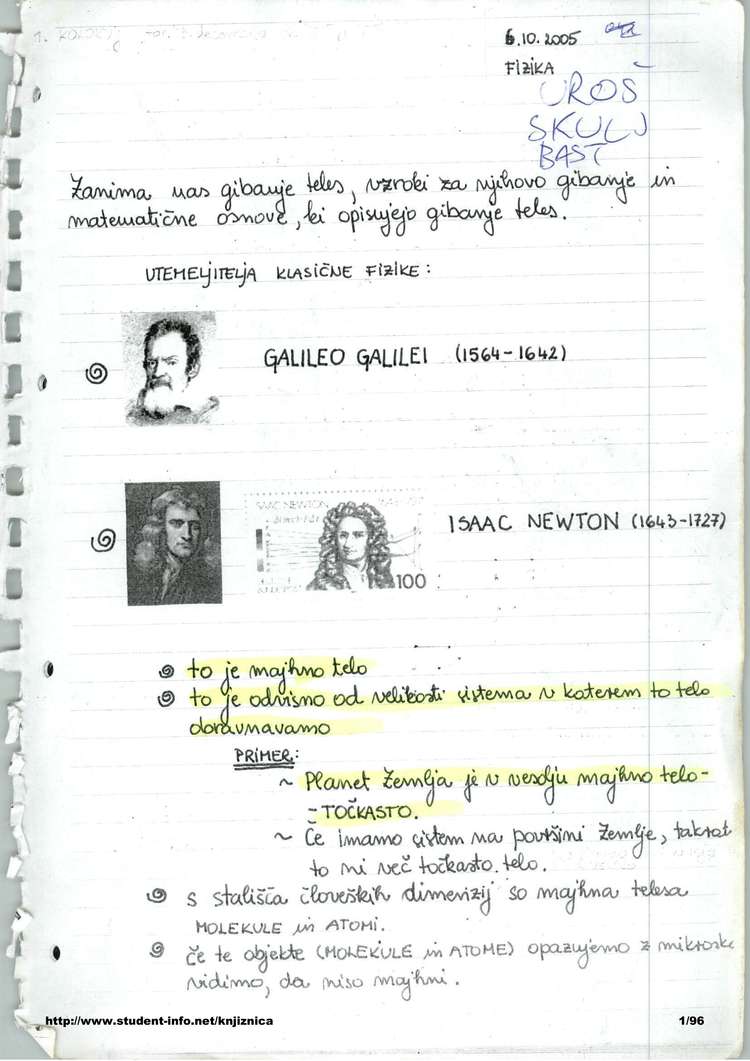 1. KOLOKVIJ
6.10.2005
FIZIKA
UROŠ
SKULJ
BAST
Zanima nas gibanje teles, vzroki za njihovo gibanje in
matematične osnove, ki opisujejo gibanje teles.
UTEMELJITELJA KLASIČNE FIZIKE:
GALILEO GALILEI (1564-1642)
ISAAC NEWTON
100
ISAAC NEWTON (1643-1727)
to je majhno telo
to je odvisno od velikosti sistema v katerem to telo
obravnavamo
PRIMER:
~ Planet Zemlja je v vesolju majhno telo-
- TOČKASTO.
~ Če imamo sistem na površini Zemlje, takrat
to ni več točkasto telo.
s stališča človeških dimenzij so majhna telesa
MOLEKULE in ATOMI.
če te objekte (MOLEKULE in ATOME) opazujemo z mikrosk
vidimo, da niso majhni.
http://www.student-info.net/knjiznica
1/96